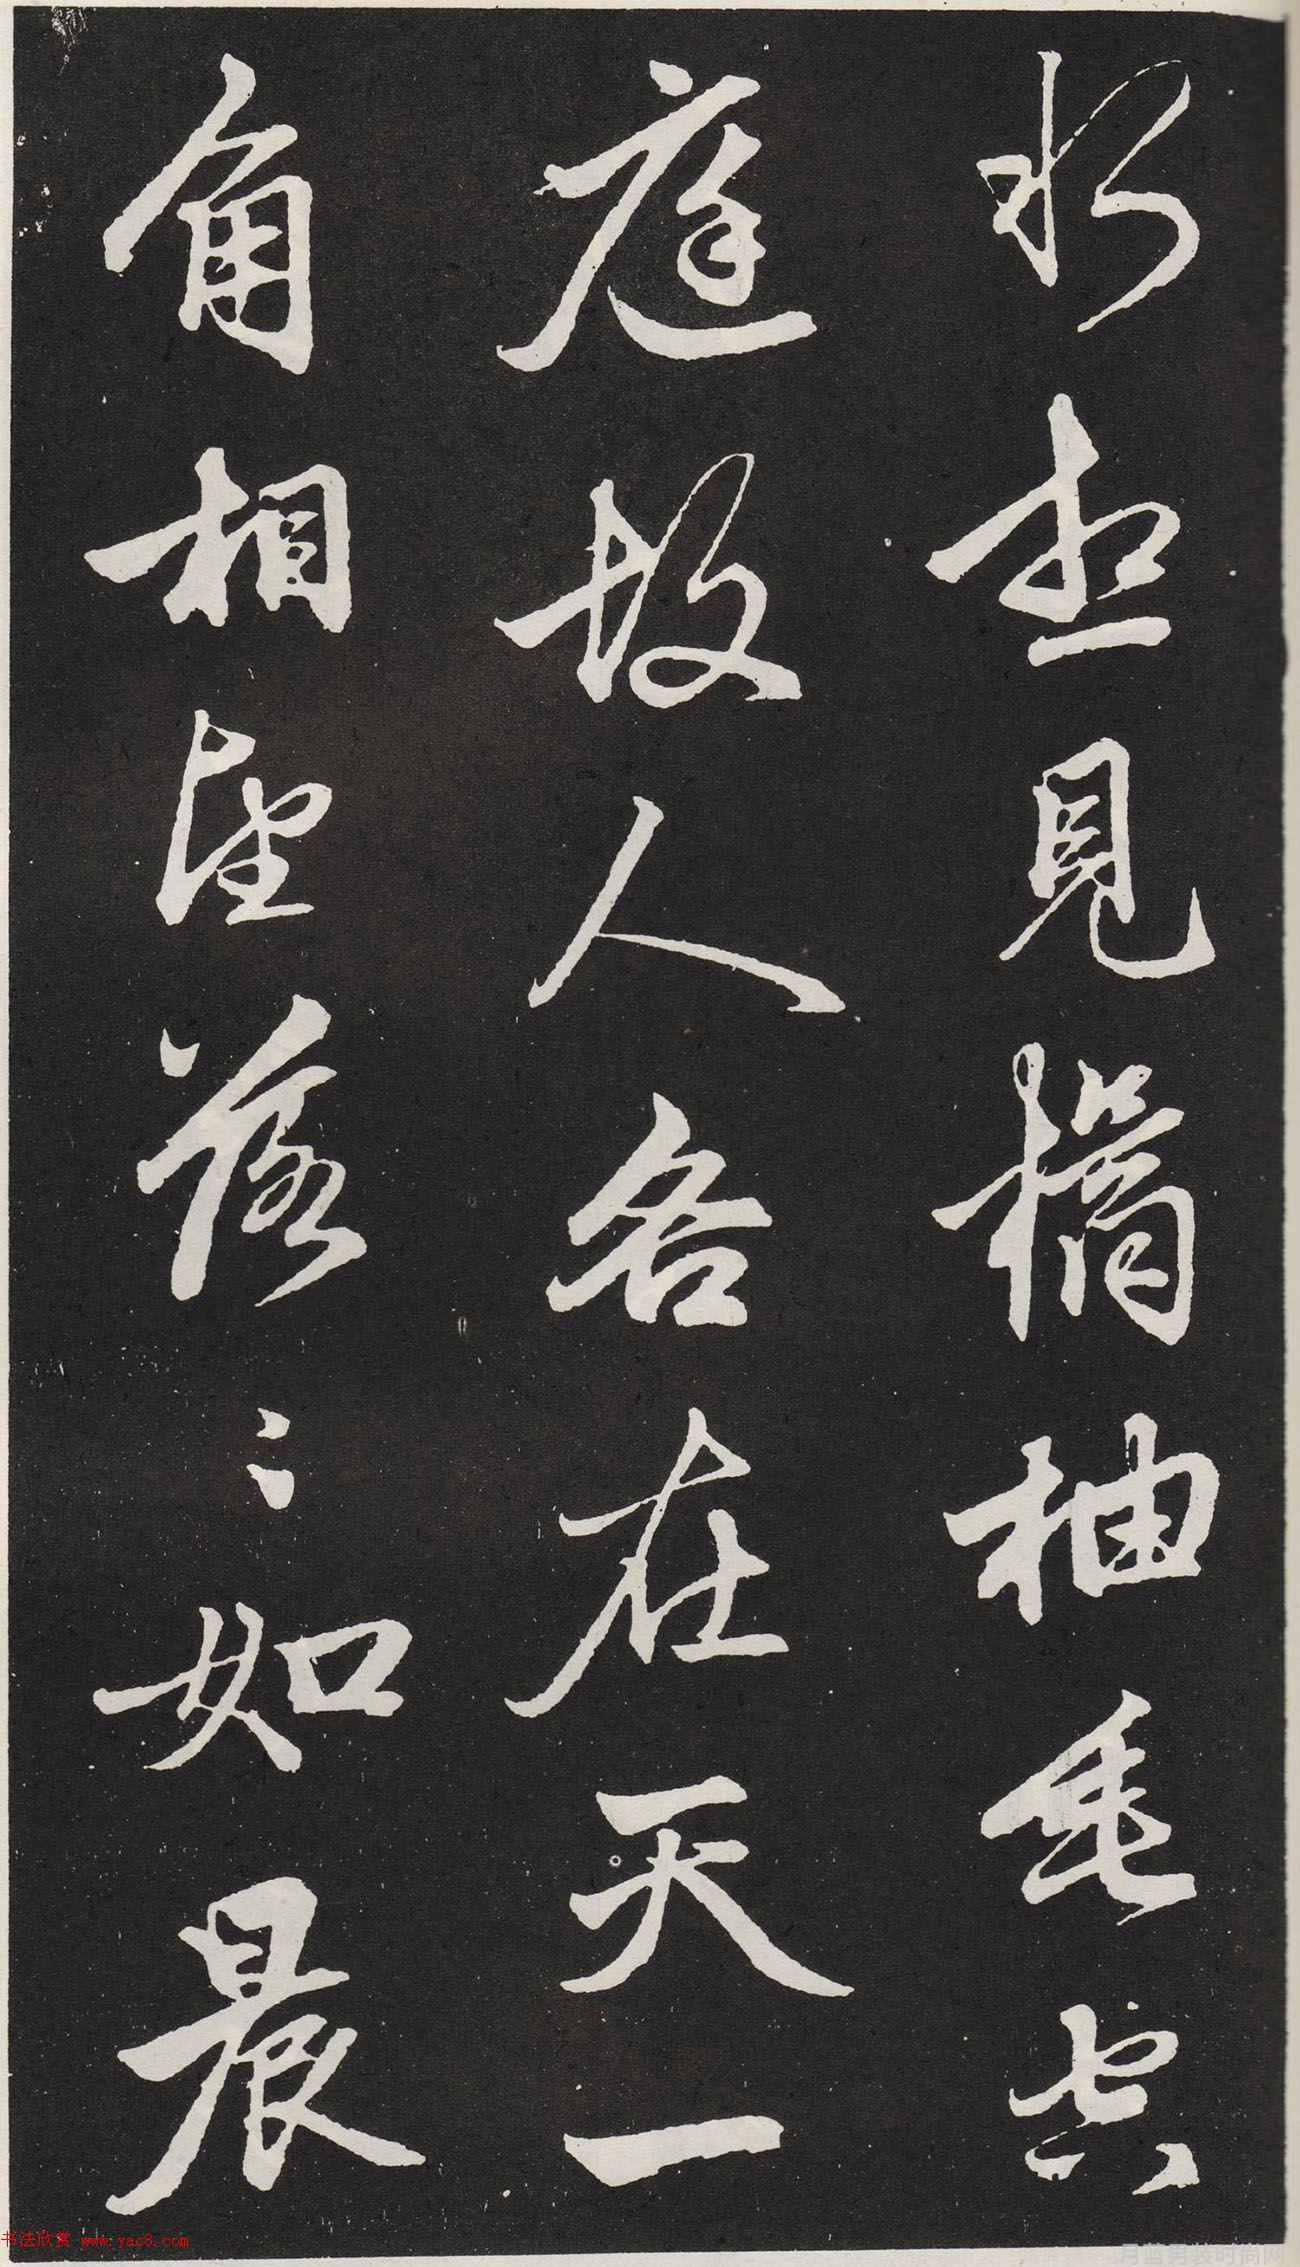 水想見橘柚垂空
庭故人各在天一
角相望落〻如晨
书法欣赏 www.yac8.com